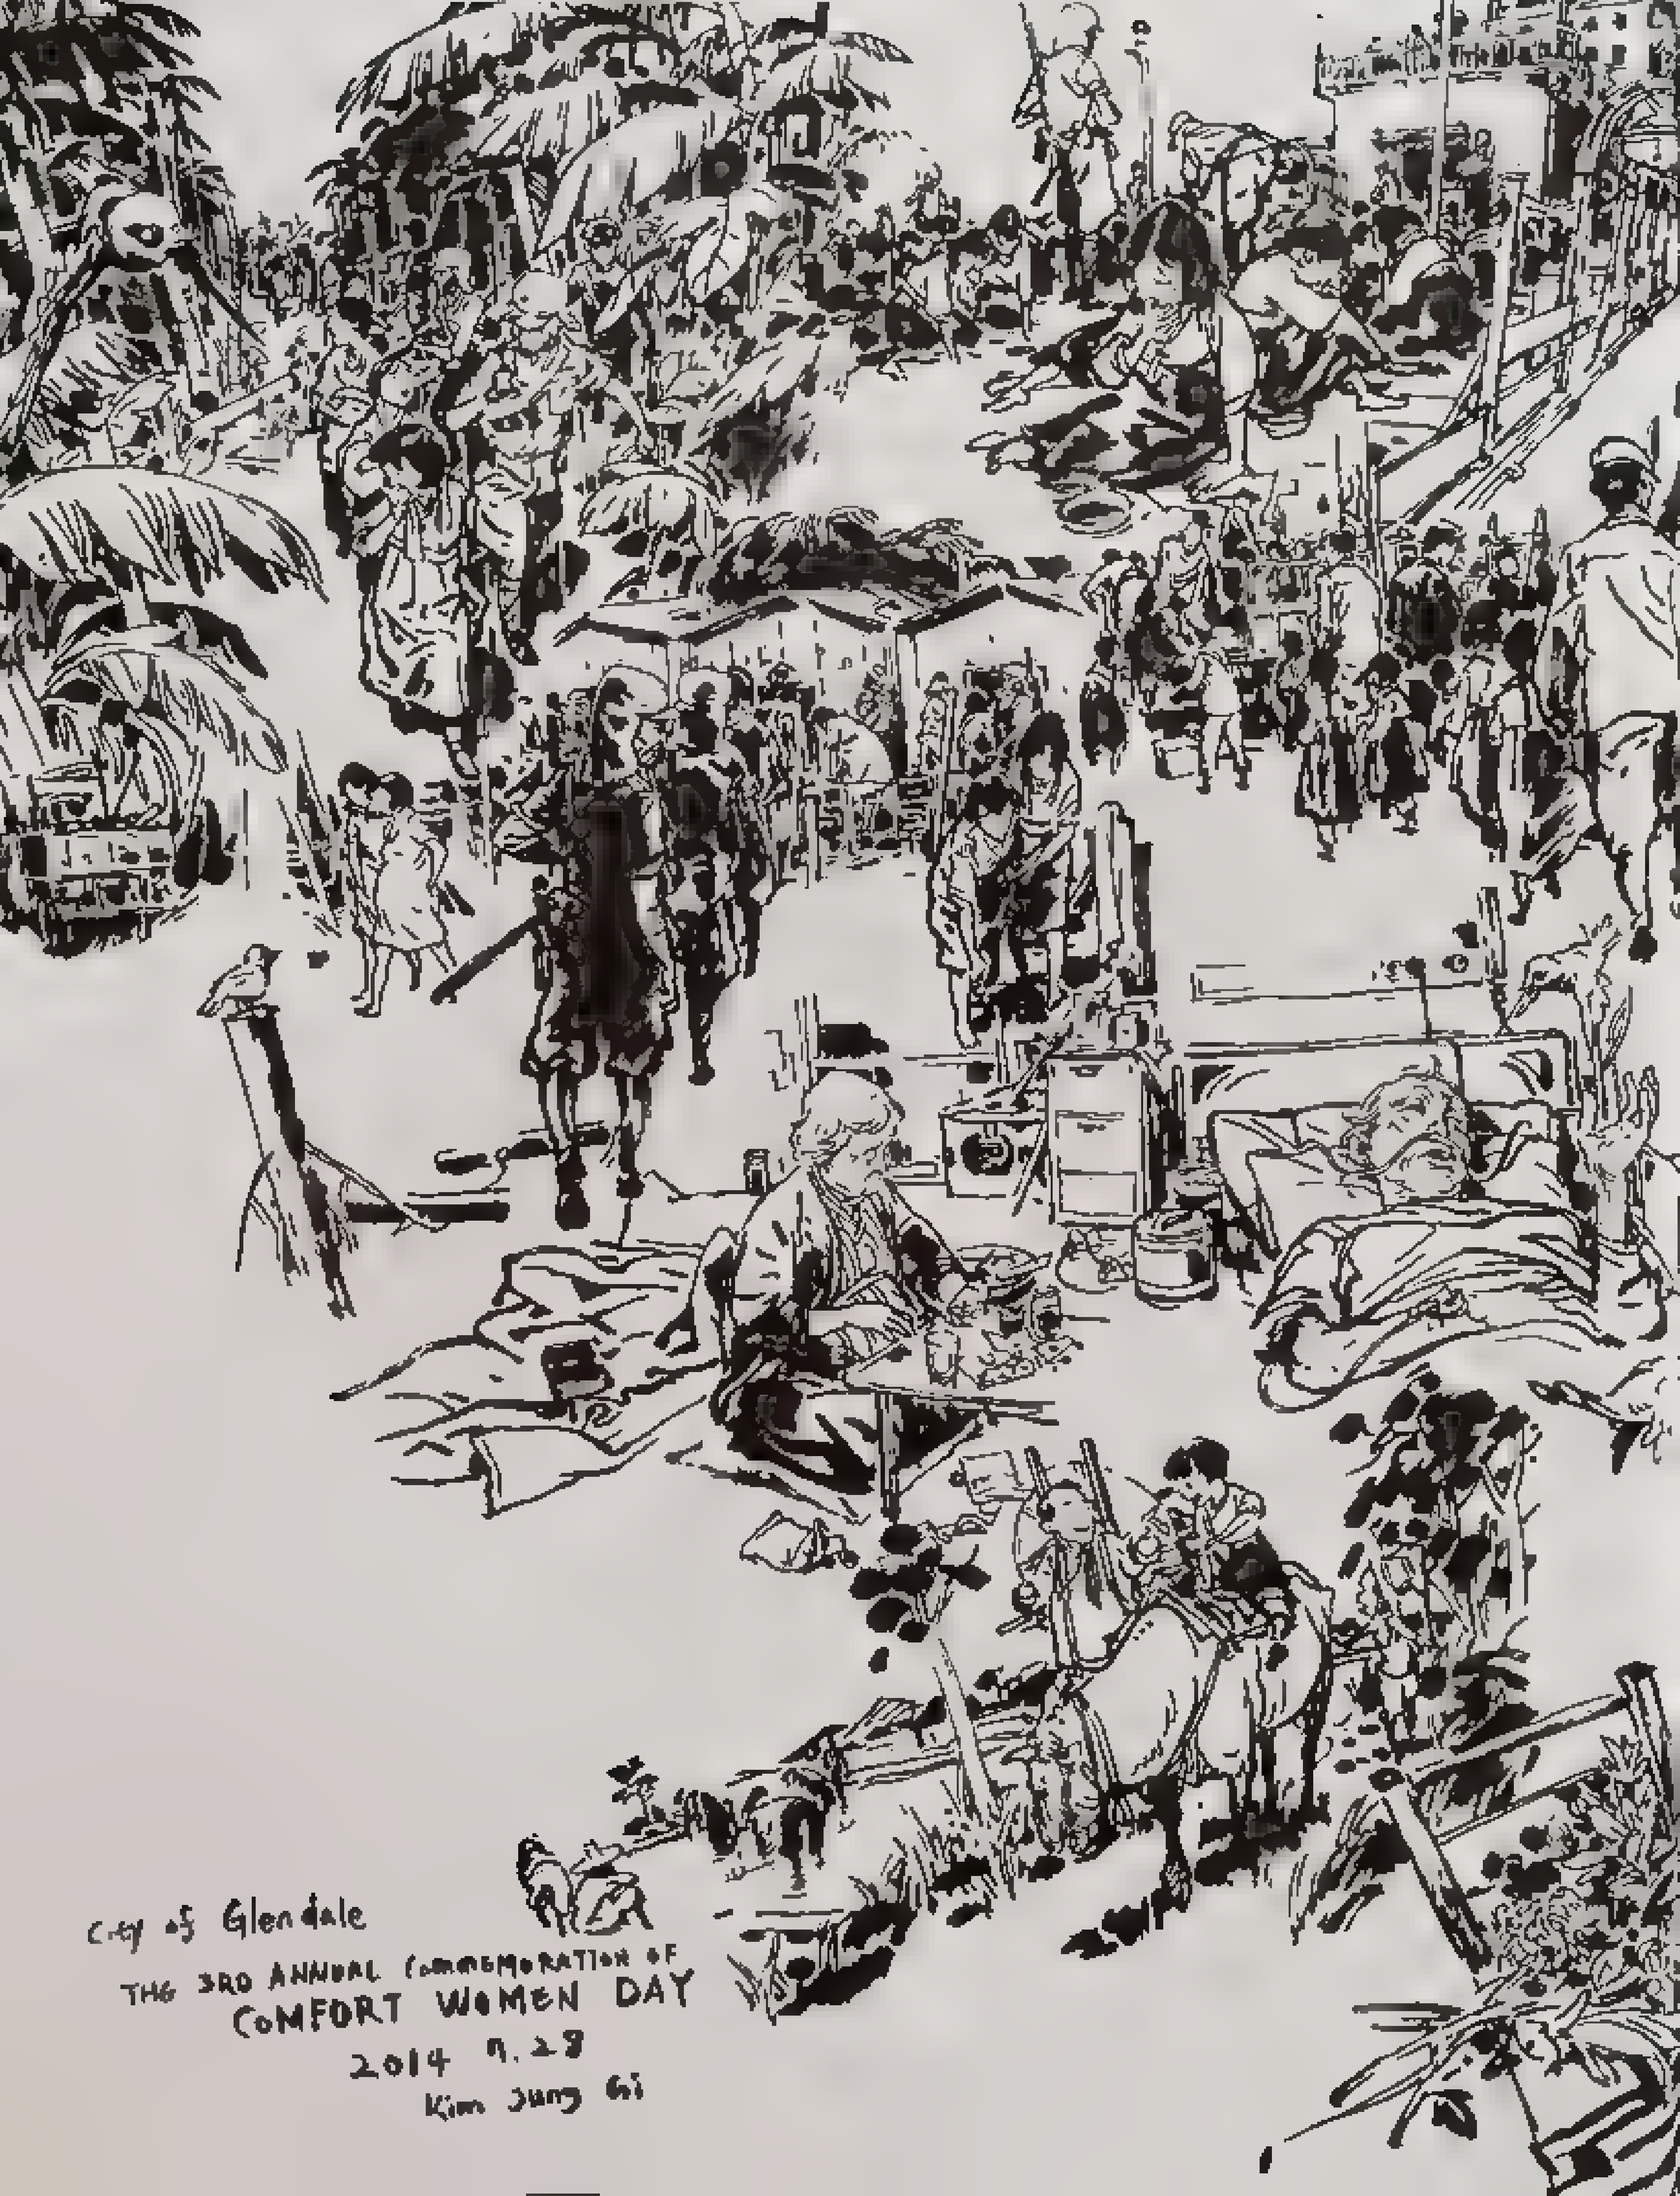 City of Glendale
THE 3RD ANNUAL COMMEMORATION OF
COMFORT WOMEN DAY
2014 7.28
Kim Jung Gi